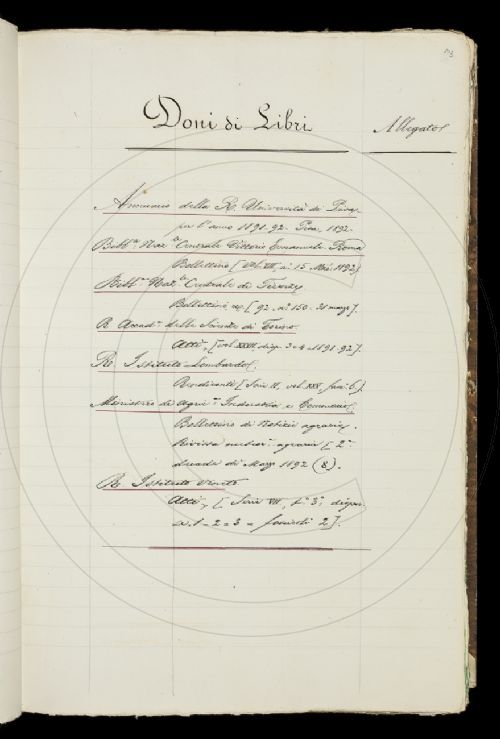 Doni di Libri
Allegato
Annuario della R. Università di Pisa
per l'anno 1891-92. Pisa, 1892.
Bibl.ca Naz.le Centrale Vittorio Emanuele Roma
Bollettino [vol. VII, n. 15 1892]
Bibl.ca Naz.le Centrale di Firenze
Bollettino, [92. n. 150. 31 marzo].
R. Accad.a delle Scienze di Torino.
Atti, [vol. XXVII, disp. 3-4 1891-92].
R. Istituto Lombardo,
Rendiconti [Serie II, vol. XXV, fasc. 6].
Ministero di Agric.a Industria e Commercio,
Bollettino di Notizie agrarie.
Rivista meteor. agraria [2ª
decade di Marzo 1892 (8).
R. Istituto Veneto
Atti, [Serie VII, T. 3, disp.
n. 1-2-3 = fascicoli 2].